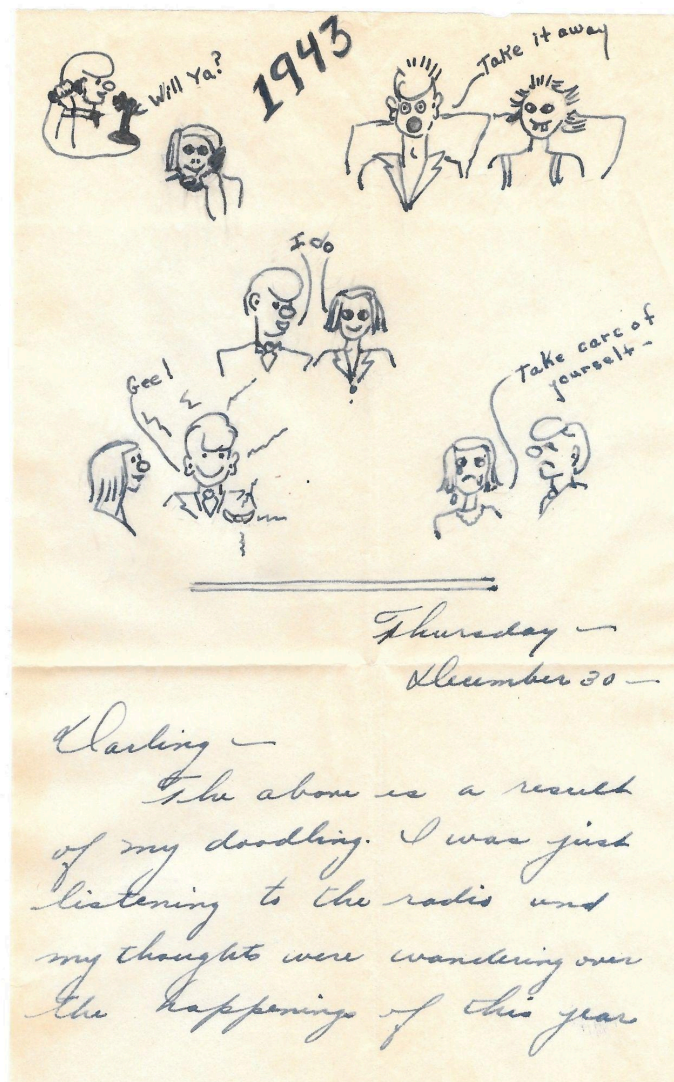 Will Ya?
1943
Take it away
I do
Gee!
Take care of
yourself-
Thursday —
December 30 —
Darling —
The above is a result
of my doodling. I was just
listening to the radio and
my thoughts were wandering over
the happenings of this year